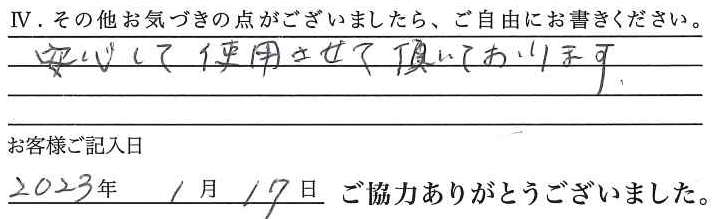 Ⅳ．その他お気づきの点がございましたら、ご自由にお書きください。
安心して使用させて頂いております。
お客様ご記入日
2023年 1月 17日 ご協力ありがとうございました。